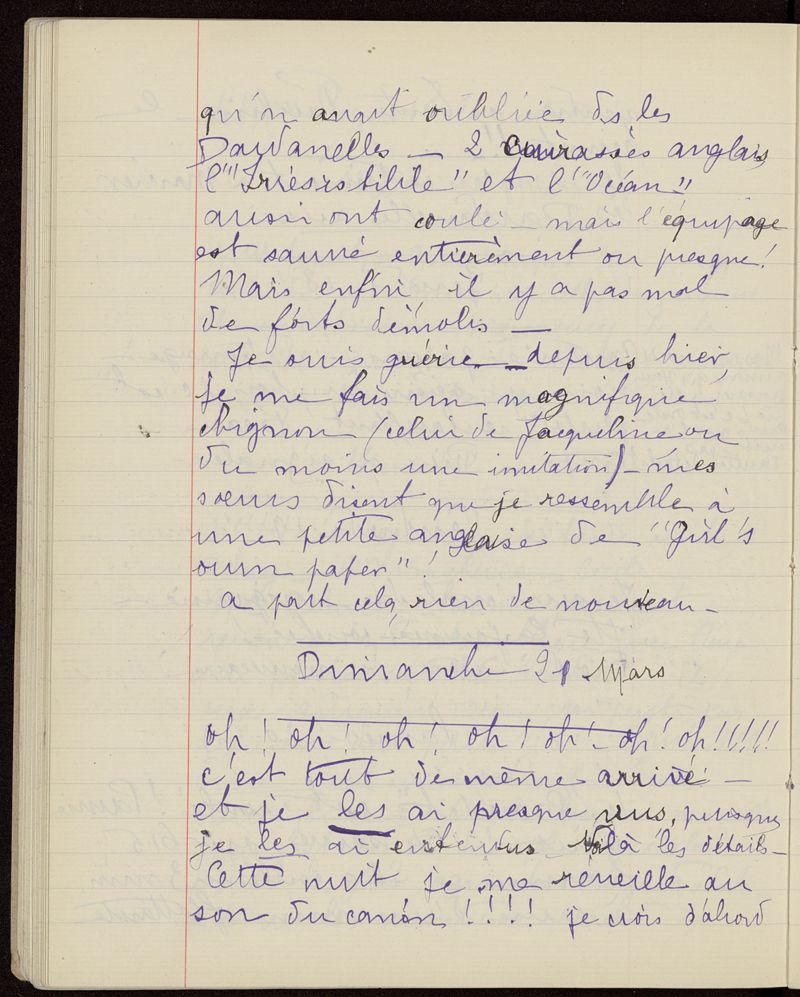 qu'on avait oubliée ds les
Dardanelles — 2 cuirassés anglais,
l'"Irrésistible" et l'"Océan"
aussi ont coulé — mais l'équipage
est sauvé entièrement ou presque !
Mais enfin, il y a pas mal
de forts démolis —
Je suis guérie — depuis hier,
je me fais un magnifique
chignon (celui de Jacqueline ou
du moins une imitation) — mes
sœurs disent que je ressemble à
une petite anglaise de "Girl's
own paper" !
a part cela, rien de nouveau —
Dimanche 21 Mars
oh ! oh ! oh ! oh ! oh ! — oh ! oh !!!!!
c'est tout de même arrivé —
et je les ai presque vus, puisque
je les ai entendus — Voilà les détails —
Cette nuit je me réveille au
son du canon !!!! je crois d'abord